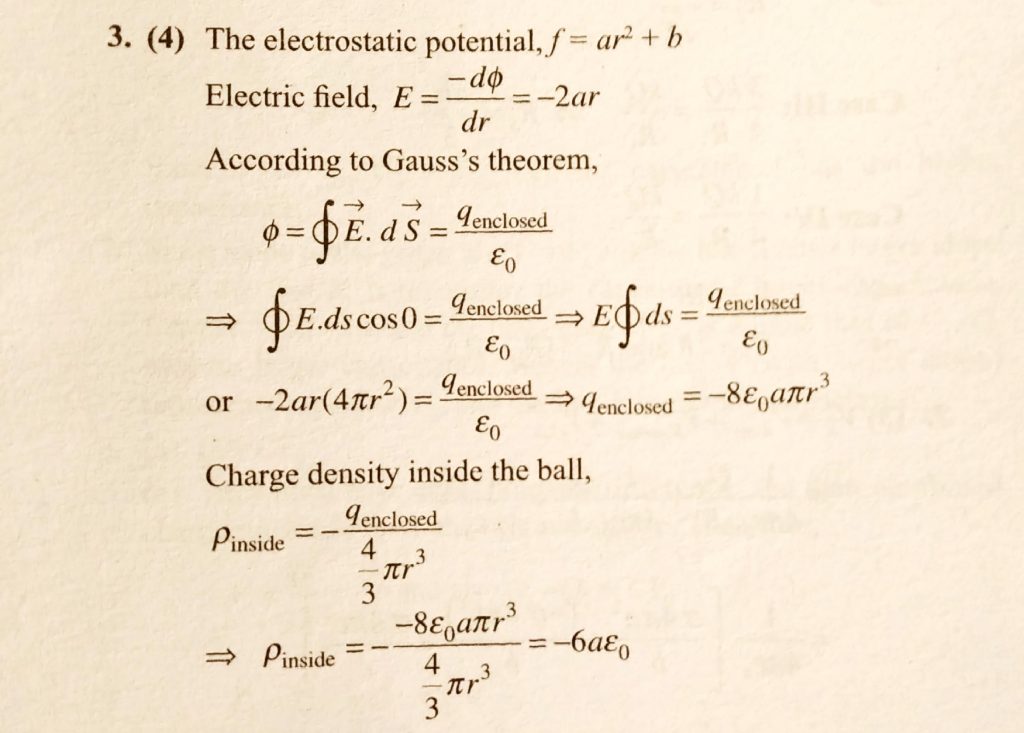 3. (4) The electrostatic potential, f = ar² + b
Electric field, E = -dϕ/dr = -2ar
According to Gauss's theorem,
ϕ = ∮E⃗. d S⃗ = q_enclosed/ε₀
⇒ ∮E.ds cos0 = q_enclosed/ε₀ ⇒ E∮ds = q_enclosed/ε₀
or -2ar(4πr²) = q_enclosed/ε₀ ⇒ q_enclosed = -8ε₀aπr³
Charge density inside the ball,
ρ_inside = - q_enclosed/(4/3 πr³)
⇒ ρ_inside = - -8ε₀aπr³/(4/3 πr³) = -6aε₀